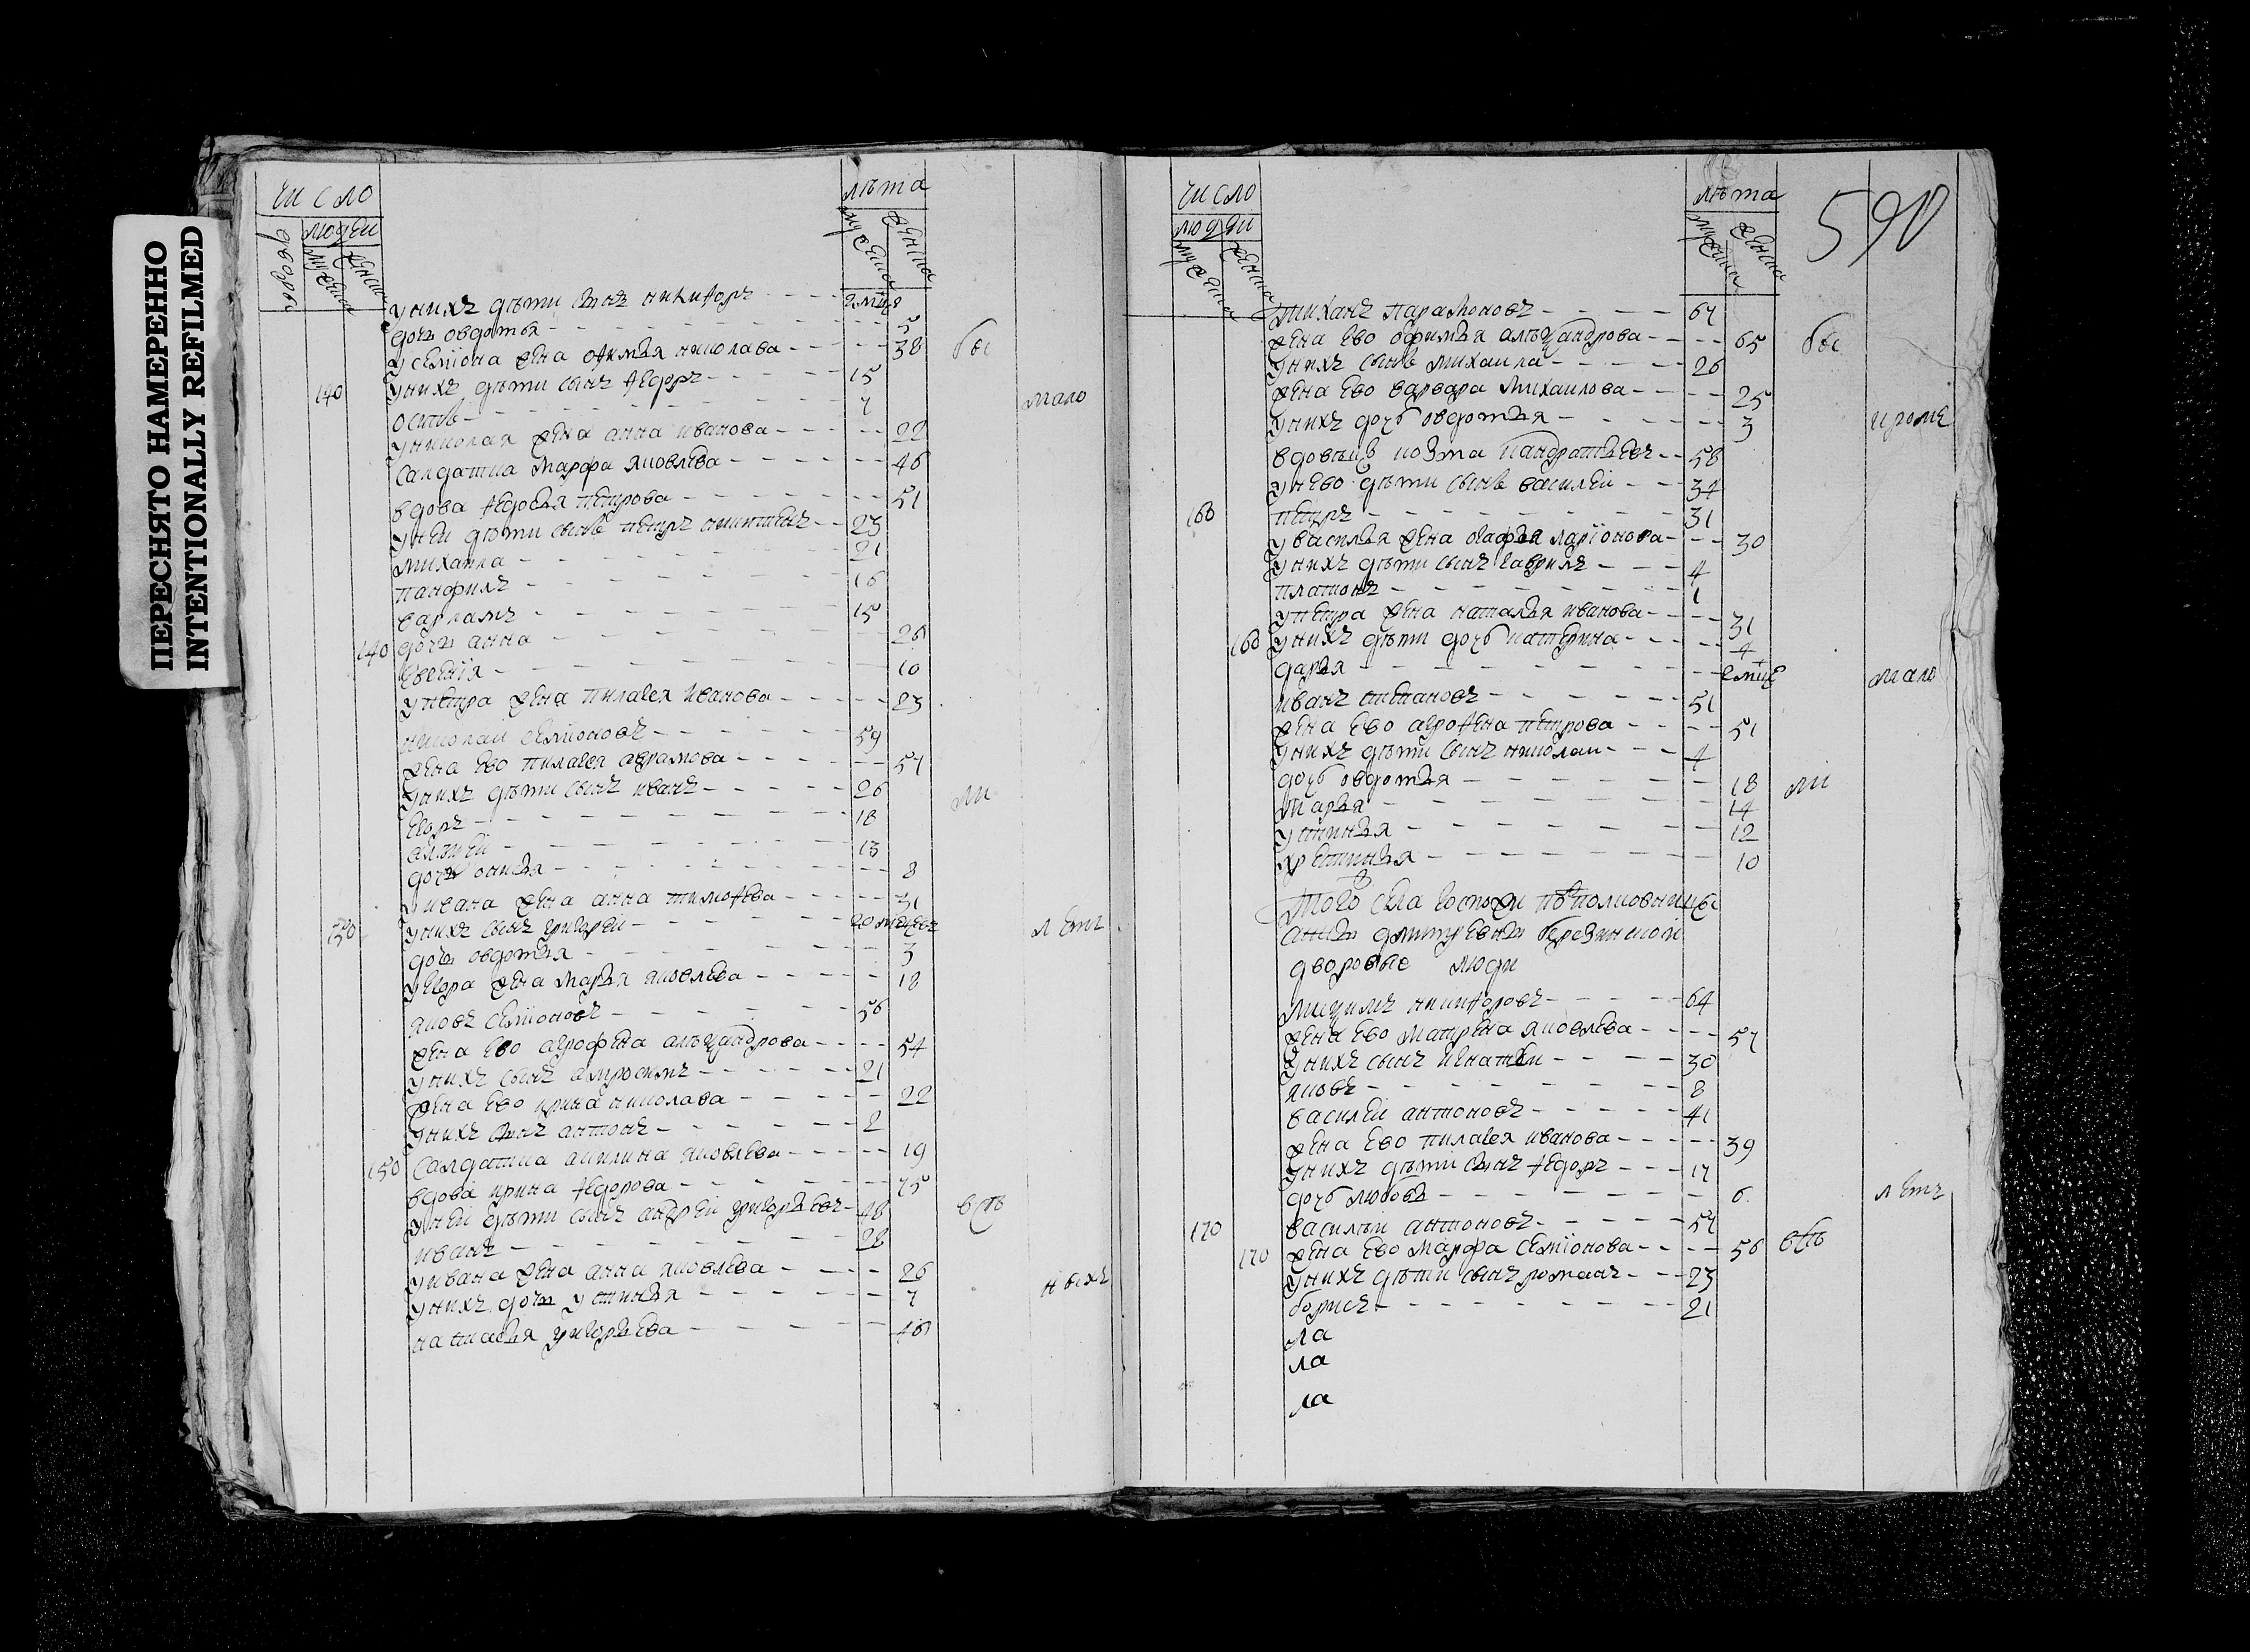 ПЕРЕСНЯТО НАМЕРЕННО
INTENTIONALLY REFILMED
число
людей
дворов
мужеска
женска
лѣта
мужеска
женска
унихъ дѣти сынъ никиѳоръ
дочь овдотья 5
усемiона жена офимья николава 38
бы
140 унихъ дѣти сынъ ѳедоръ 15
мало
осипъ 7
уникалая жена анна иванова 22
салдатка марфа яковлева 46
вдова ѳедосья петрова 51
уней дѣти сынъ петръ никитинъ 23
михаила 21
панфилъ 16
варламъ 15
140 дочь анна 26
евгенiя 10
упетра жена пилагея иванова 23
николаи семiоновъ 59
жена ево пилагея аврамова 57
унихъ дѣти сынъ иванъ 26
ли
егоръ 18
алѣксѣи 13
дочь 8
уивана жена анна тимоѳева 31
150 унихъ сынъ григореи
летъ
дочь овдотья 3
уегора жена марья яковлева 18
яковъ семiоновъ 56
жена ево агрофена алѣксандрова 54
унихъ сынъ амросимъ 21
жена ево ирина николава 22
унихъ сынъ антонъ 2
150 салдатка акилина яковлева 19
вдова ирина ѳедорова 75
уней дѣти сынъ андреи григорьевъ 48
въсѣ
иванъ 28
уивана жена анна яковлева 26
ныхъ
унихъ дочь устинья 7
настасья григорьева 46
число
людей
мужеска
женска
лѣта
мужеска
женска
590
степанъ парамоновъ 67
жена ево офимья алѣксандрова 65
бы
унихъ сынъ михаила 26
жена ево варвара михаилова 25
унихъ дочь овдотья 3
кромъ
вдовецъ козма кандратьевъ 58
унево дѣти сынъ василеи 34
160 петръ 31
увасилья жена агафья ларiонова 30
унихъ дѣти сынъ гаврилъ 4
платонъ 1
упетра жена наталья иванова 31
160 унихъ дѣти дочь катерина 4
дарья
мало
иванъ степановъ 51
жена ево агроѳена петрова 51
унихъ дѣти сынъ николаи 4
дочь овдотья 18
ли
марья 14
устинья 12
хрестинья 10
того села госпожи подполковницы
анны дмитревны березинскои
дворовые люди
максимъ никиѳоровъ 64
жена ево матрена яковлева 57
унихъ сынъ игнатеи 30
яковъ 8
василеи антоновъ 41
жена ево пилагея иванова 39
унихъ дѣти сынъ ѳедоръ 17
дочь любовь 6
летъ
170 василѣи антоновъ 57
170 жена ево марфа семiонова 56
въсѣ
унихъ дѣти сынъ романъ 23
борисъ 21
ла
ла
ла